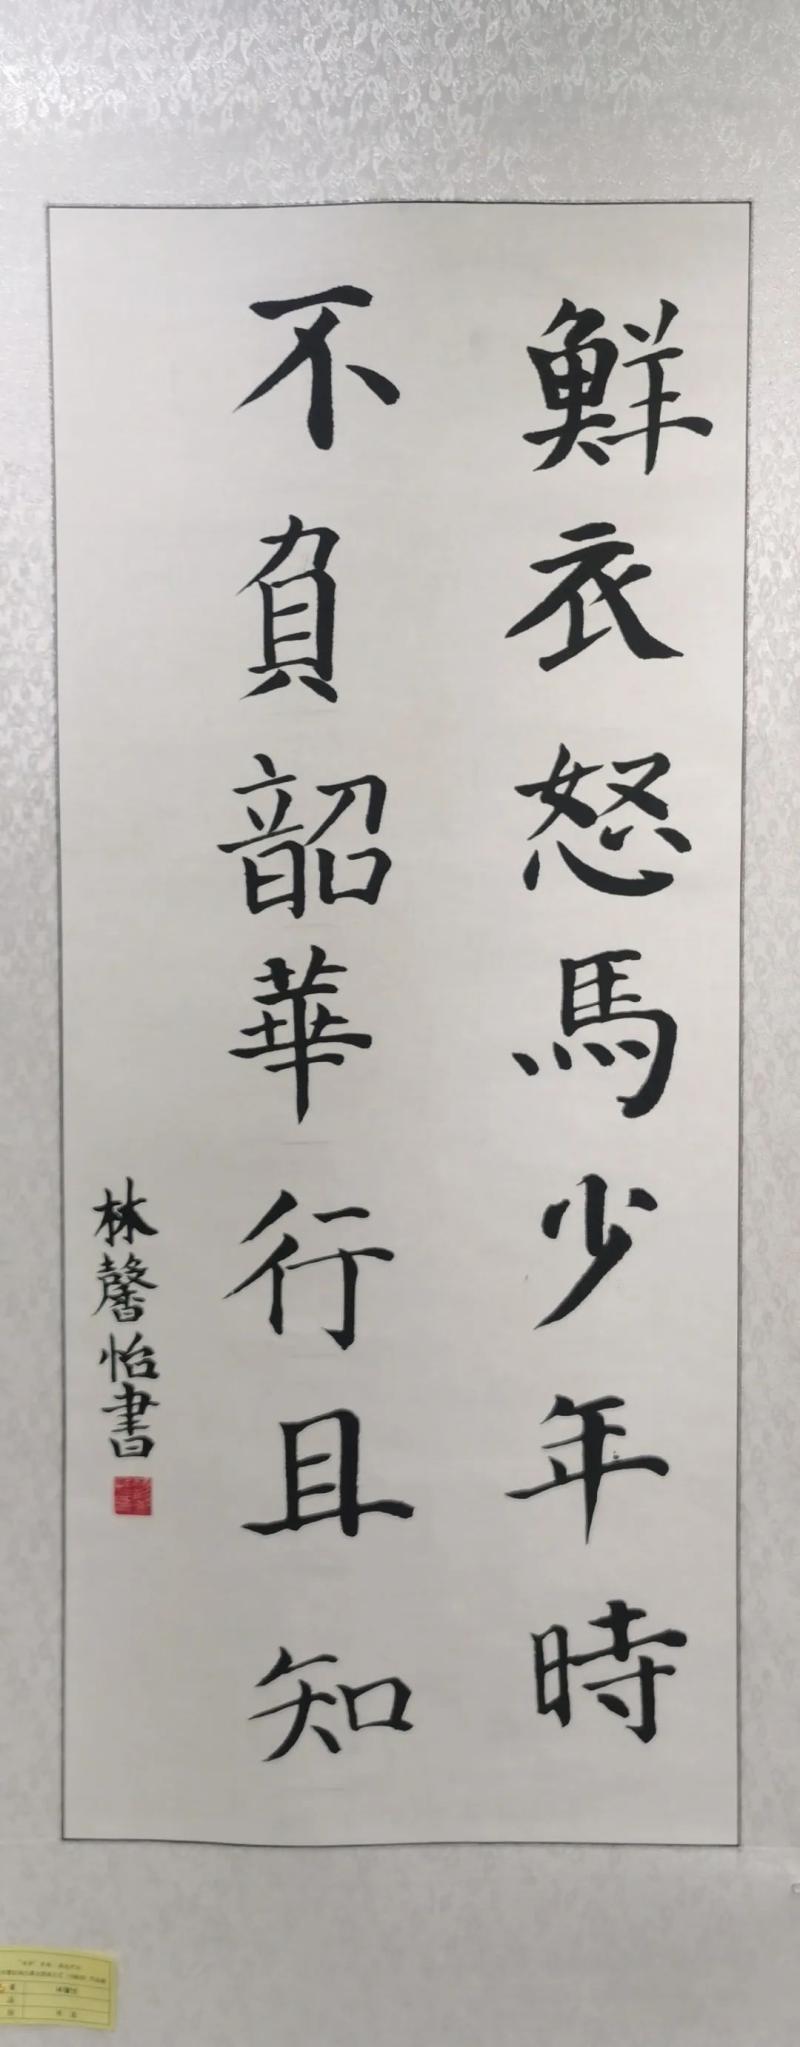 鮮衣怒馬少年時
不負韶華行且知
林馨怡書